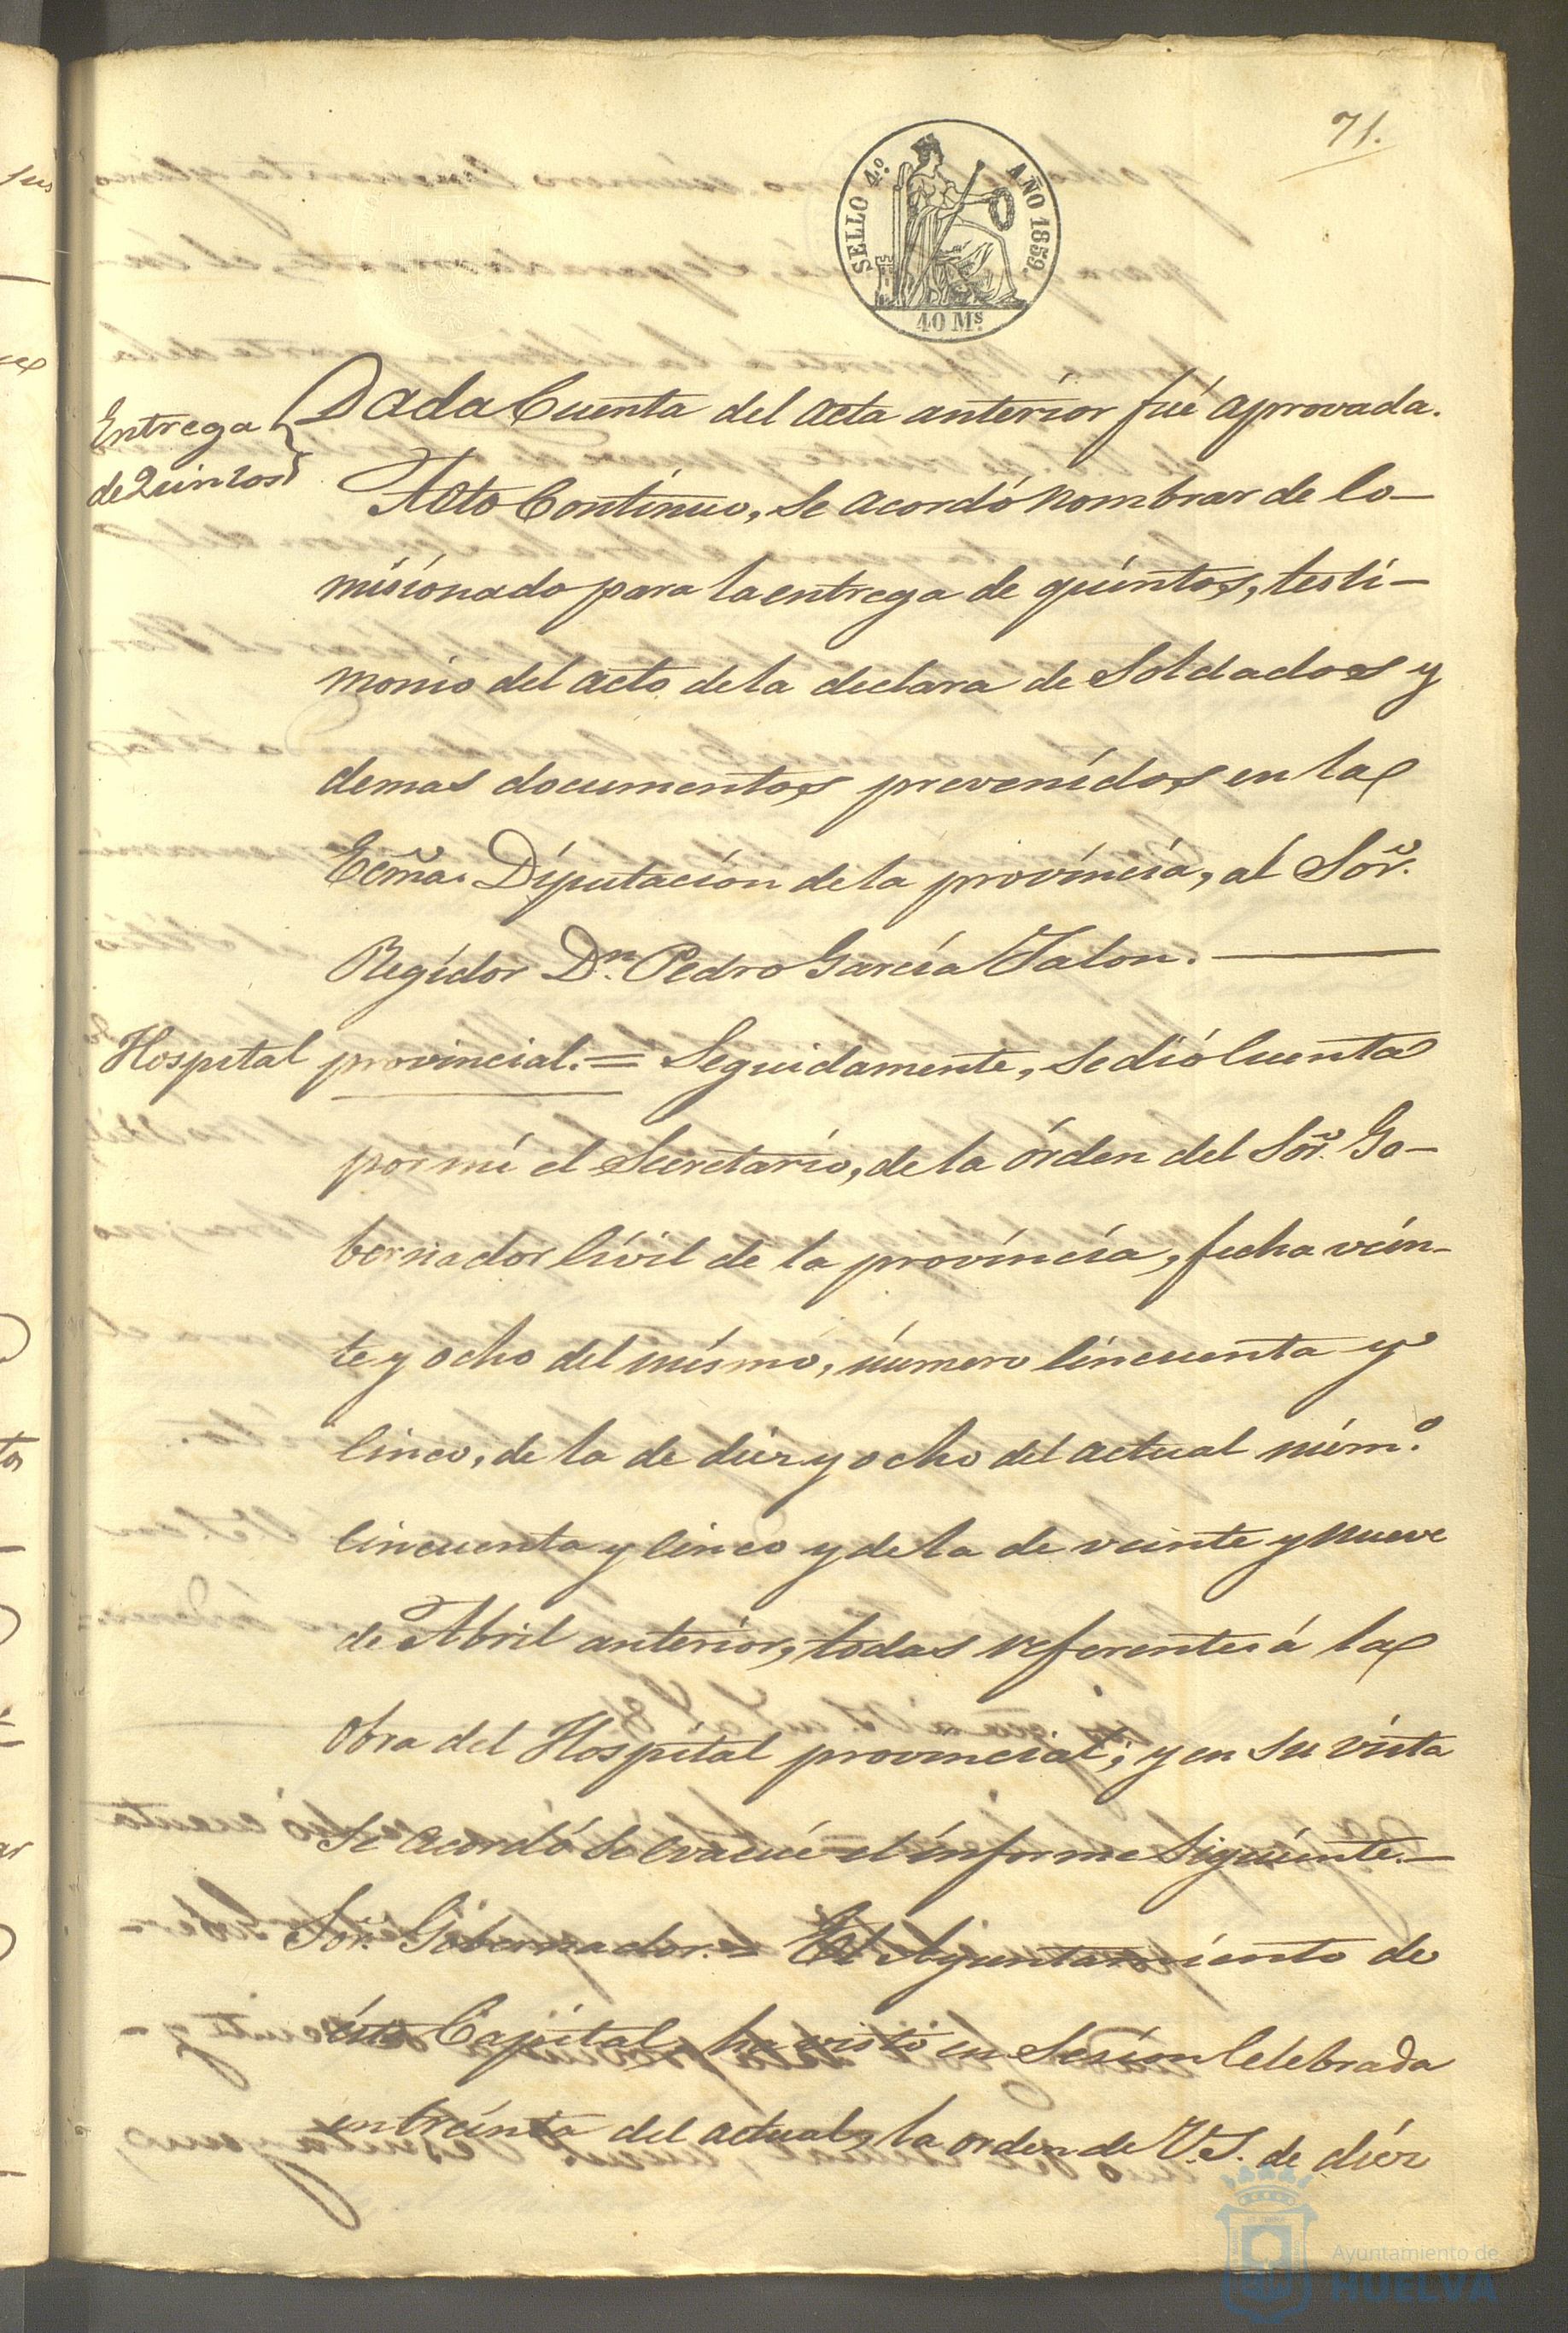 71.
SELLO 4.º AÑO 1859.
40 Ms.
Entrega
de Quintos
Dada Cuenta del acta anterior fué aprovada.
Acto Continuo, se acordó nombrar de Co-
misionado para la entrega de quintos, testi-
monio del acto de la declara de Soldados y
demas documentos prevenidos en la
Ecma. Diputacion de la provincia, al Sor.
Regidor Dn. Pedro Garcia Jalon.
Hospital provincial.= Seguidamente, se dió Cuenta
por mi el Secretario, de la órden del Sor. Go-
bernador Civil de la provincia, fecha vein-
te y ocho del mismo, número Cincuenta y
Cinco, de la de diez y ocho del actual núm.º
Cincuenta y Cinco y de la de veinte y nueve
de Abril anterior, todas referentes á la
obra del Hospital provincial; y en su vista
se acordó se evacúe el informe siguiente.—
Sor. Gobernador.= El Ayuntamiento de
ésta Capital, ha visto en Sesion Celebrada
en treinta del actual, la orden de V.S. de diez
Ayuntamiento de
HUELVA